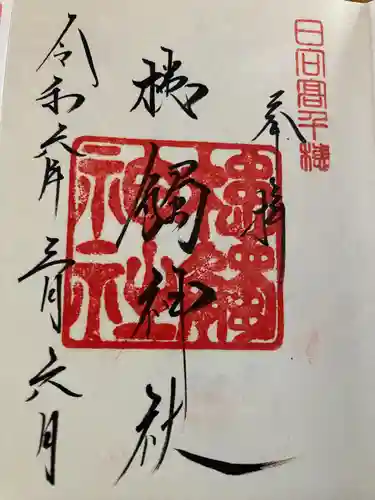 日向髙千穂
奉拝
槵觸神社
槵觸神社
令和六年三月六月